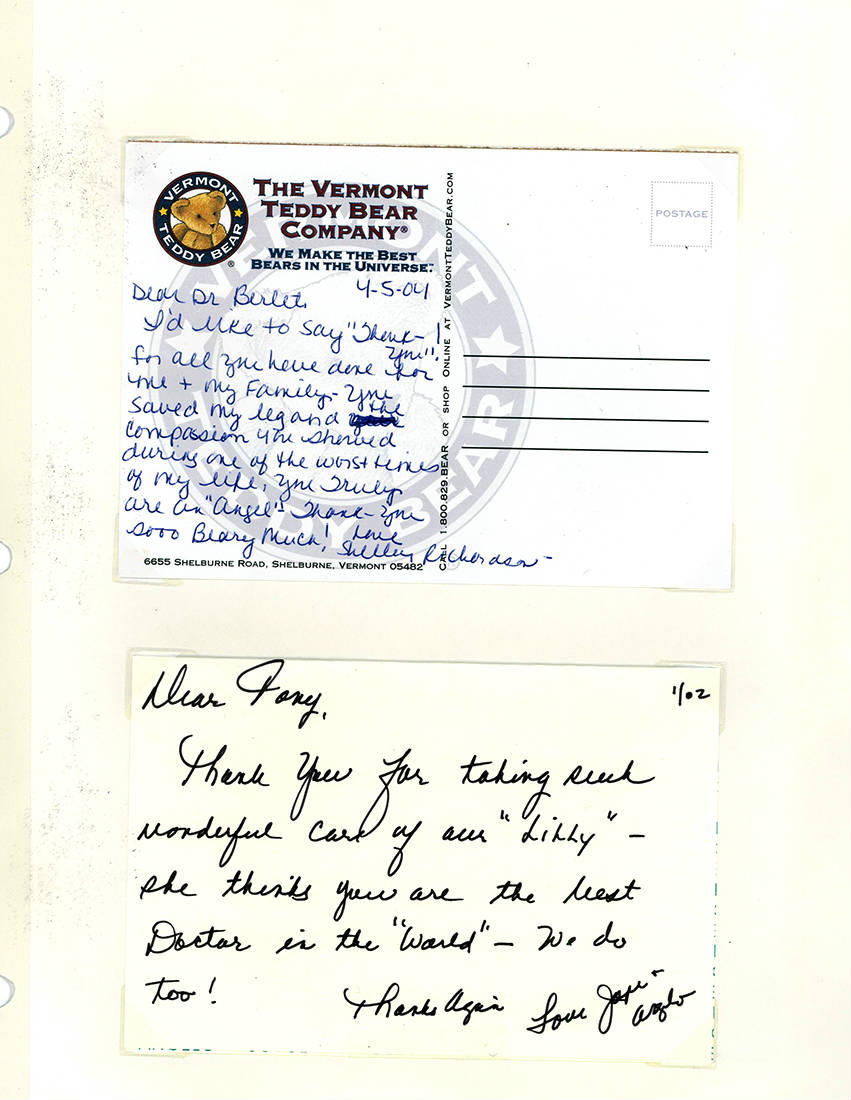 VERMONT
TEDDY BEAR
®
THE VERMONT
TEDDY BEAR
COMPANY®
WE MAKE THE BEST
BEARS IN THE UNIVERSE.™
POSTAGE
CALL 1.800.829.BEAR OR SHOP ONLINE AT VERMONTTEDDYBEAR.COM
VERMONT
TEDDY BEAR
4-5-04
Dear Dr Berlet,
I'd like to say "Thank-
You"!
for all you have done for
me + my Family - You
saved my leg and the
compassion you showed
during one of the worst times
of my life, You Truly
are an "Angel" Thank-You
sooo Beary Much! Love
Shelley Richardson -
6655 SHELBURNE ROAD, SHELBURNE, VERMONT 05482
1/02
Dear Tony,
Thank You for taking such
wonderful care of our "Lilly" -
she thinks you are the best
Doctor in the "World" - We do
too!
Thanks Again
Love